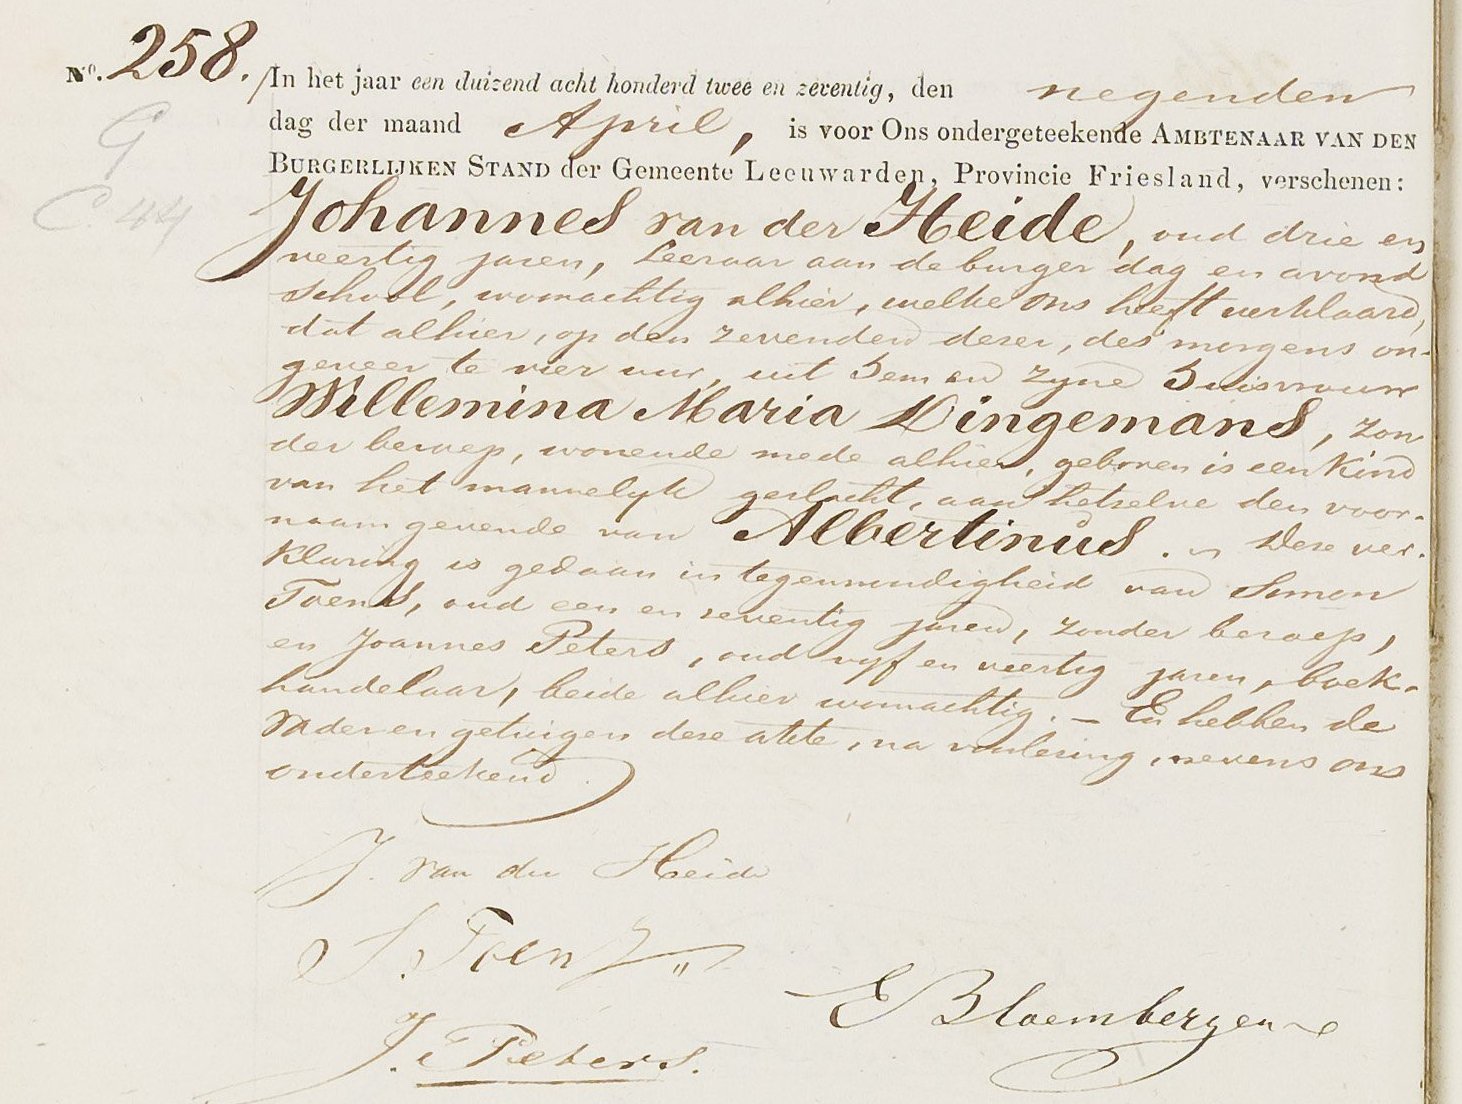 No. 258. In het jaar een duizend acht honderd twee en zeventig, den negenden
dag der maand April, is voor Ons ondergeteekende AMBTENAAR VAN DEN
BURGERLIJKEN STAND der Gemeente Leeuwarden, Provincie Friesland, verschenen:
G
C. 44
Johannes van der Heide, oud drie en
veertig jaren, Leeraar aan de burger dag en avond
school, woonachtig alhier, welke Ons heeft verklaard,
dat alhier, op den zevenden dezer, des morgens on-
geveer te vier uur, uit hem en zyne huisvrouw
Willemina Maria Dingemans, zon
der beroep, wonende mede alhier, geboren is een Kind
van het mannelyk geslacht, aan hetzelve den voor-
naam gevende van Albertinus. Deze ver-
klaring is gedaan in tegenwoordigheid van Simon
Toens, oud een en zeventig jaren, zonder beroep,
en Joannes Peters, oud vyf en veertig jaren, boek-
handelaar, beide alhier woonachtig. – En hebben de
Vader en getuigen deze akte, na voorlezing, nevens ons
onderteekend.
J. van der Heide
S. Toens
E Bloembergen
J. Peters.